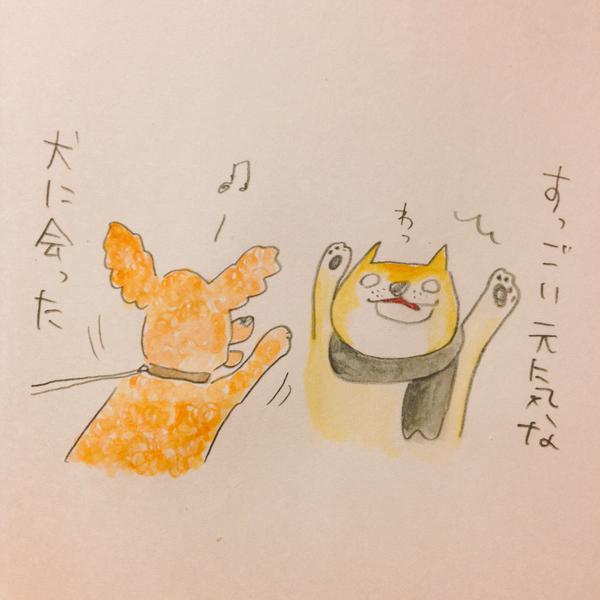 すっごい元気な
わっ
犬に会った